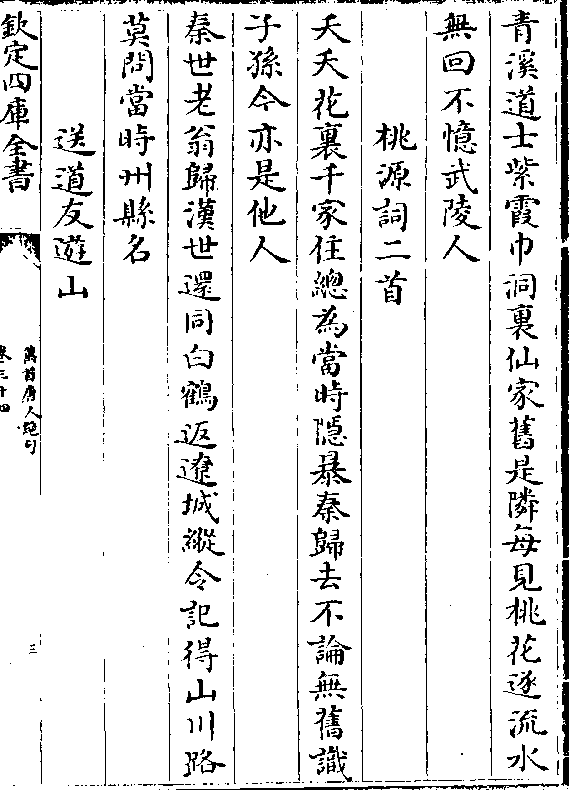 青溪道士紫霞巾洞裏仙家舊是隣每見桃花逐流水
無回不憶武陵人
桃源詞二首
夭夭花裏千家住總為當時隱暴秦歸去不論無舊識
子孫今亦是他人
秦世老翁歸漢世還同白鶴返遼城縱令記得山川路
莫問當時州縣名
送道友遊山
欽定四庫全書
萬首唐人絶句
卷三十四
三